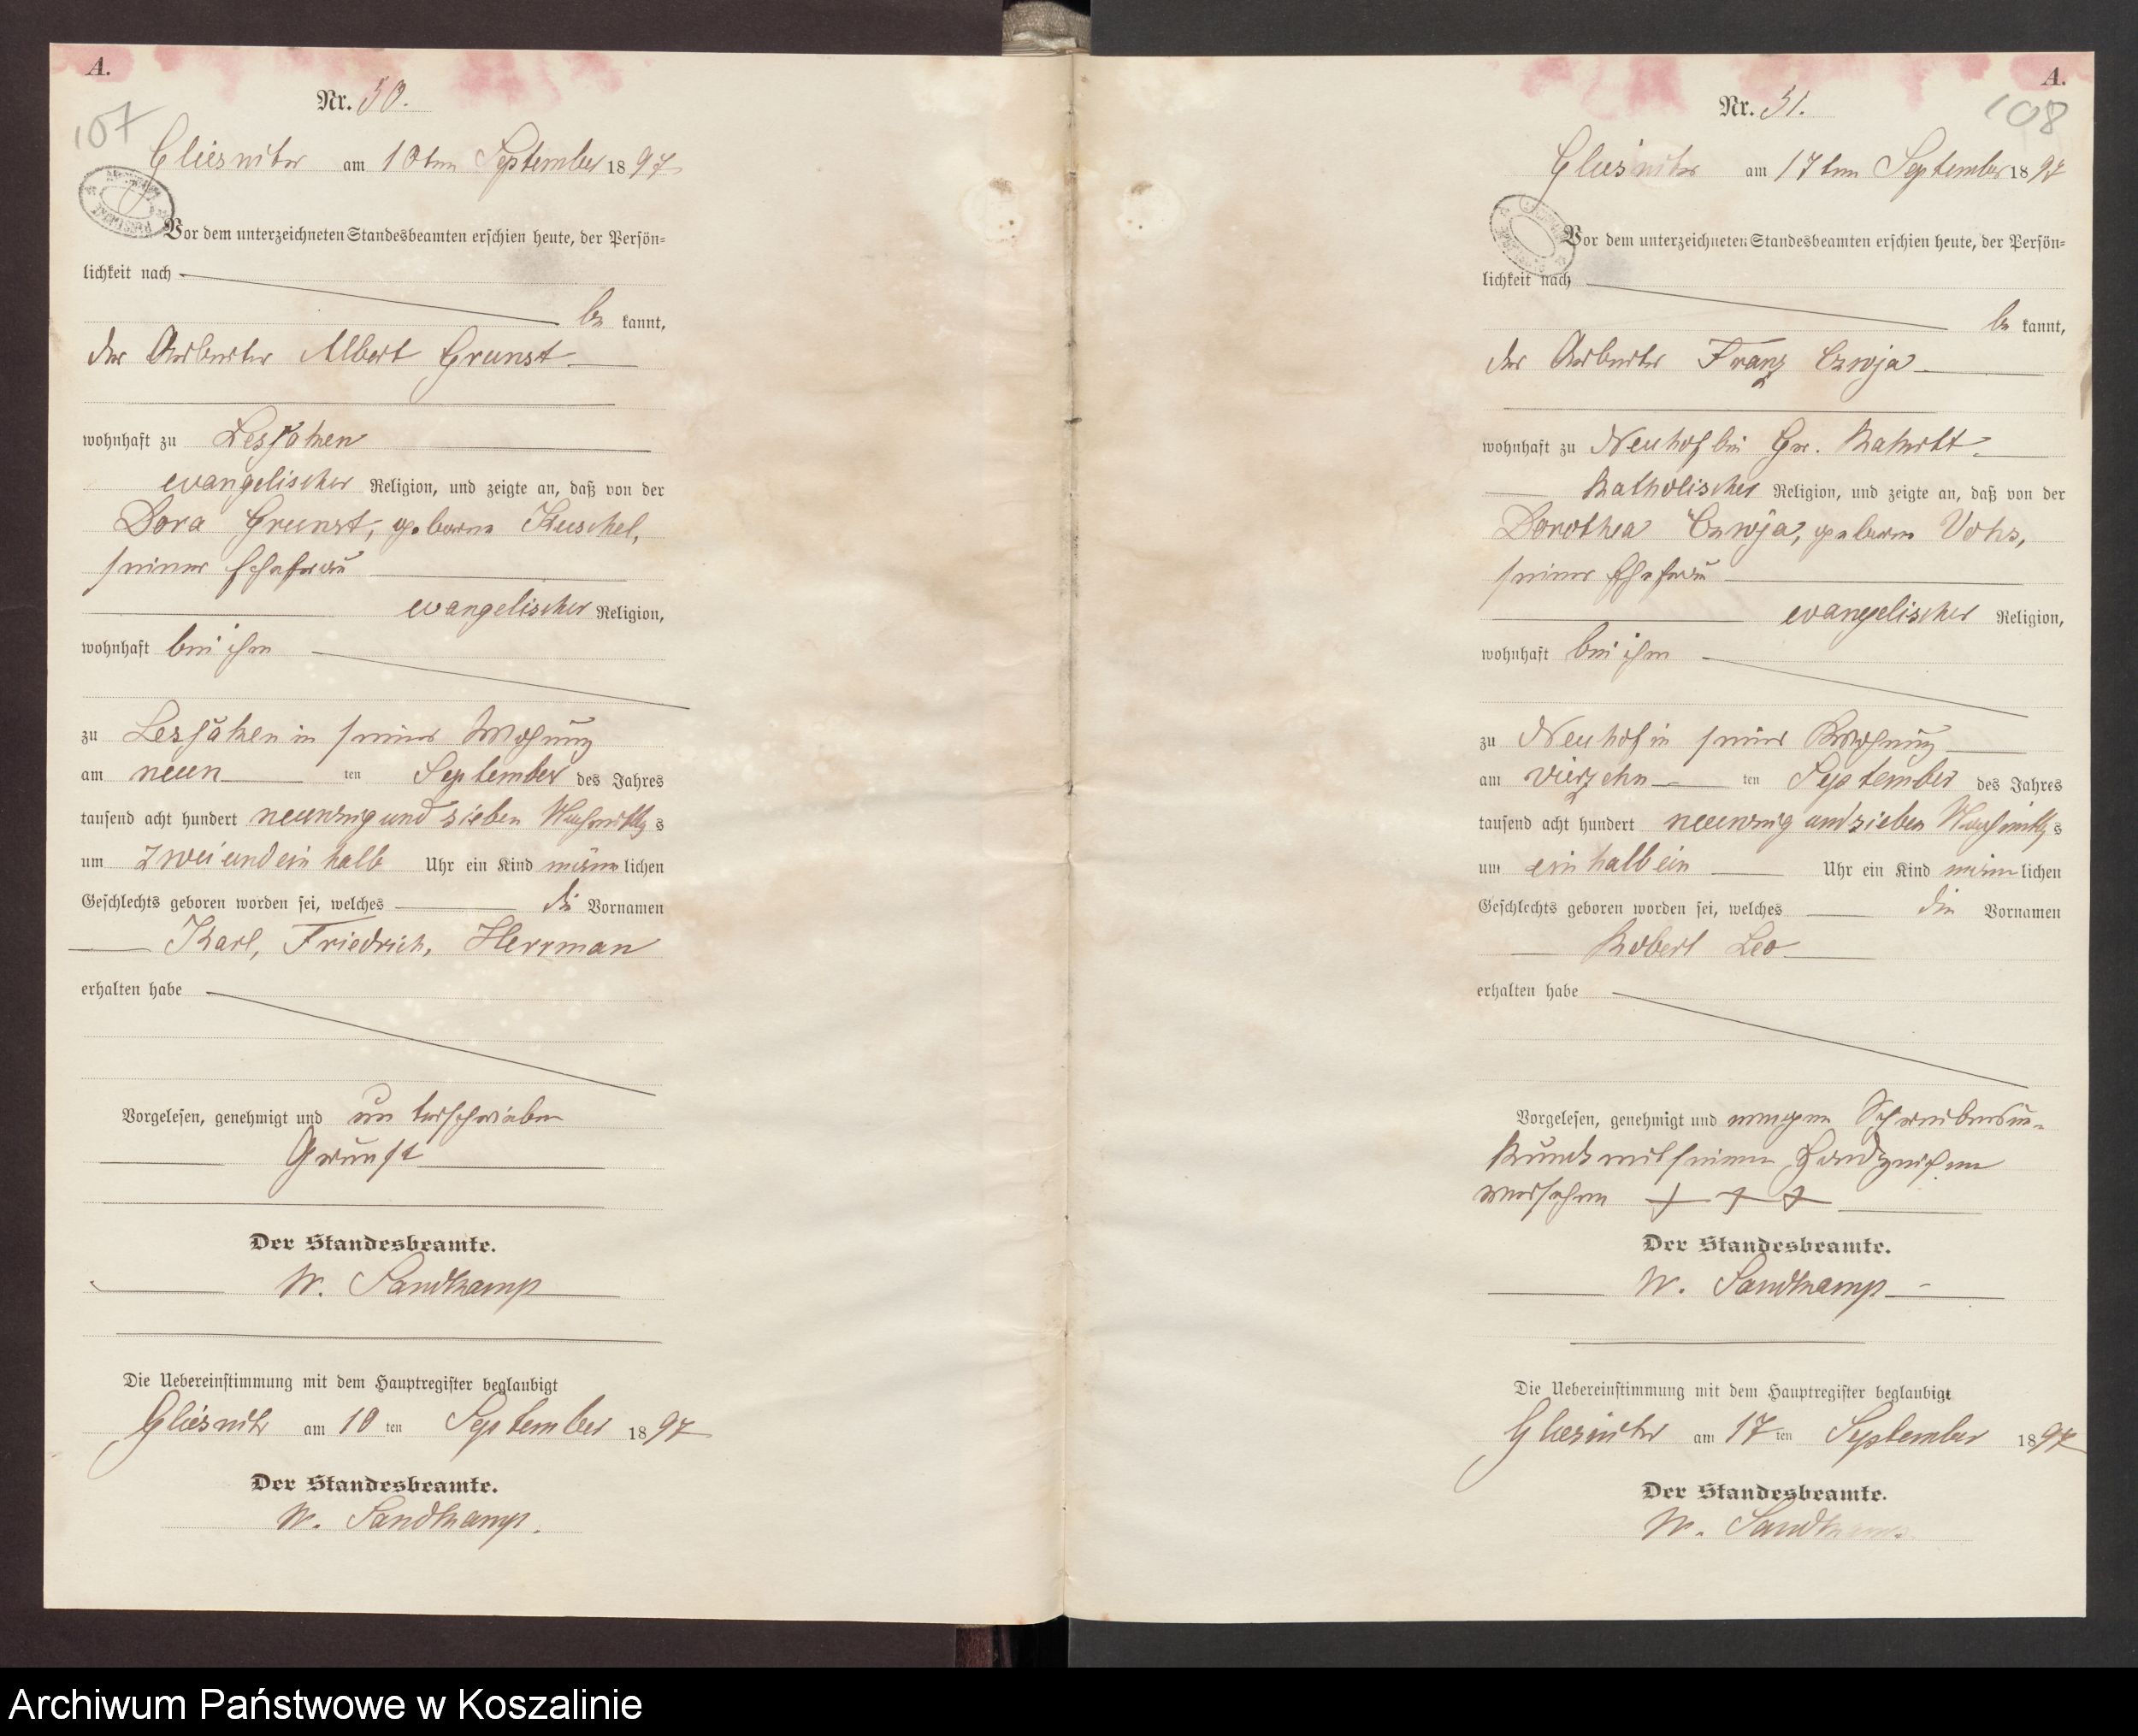 A.
107
Nr. 50.
Gliesnitz am 10ten September 1897
Vor dem unterzeichneten Standesbeamten erschien heute, der Persön=
lichkeit nach
be kannt,
der Arbeiter Albert Grunst
wohnhaft zu Lesjahen
evangelischer Religion, und zeigte an, daß von der
Dora Grunst, geborne Kuschel,
seiner Ehefrau
evangelischer Religion,
wohnhaft bei ihm
zu in seiner Wohnung
am neun ten September des Jahres
tausend acht hundert neunzig und sieben Nachmittags
um zwei und ein halb Uhr ein Kind männlichen
Geschlechts geboren worden sei, welches die Vornamen
Karl, Friedrich, Herrman
erhalten habe
Vorgelesen, genehmigt und unterschrieben
Grunst
Der Standesbeamte.
W. Sandkamp
Die Uebereinstimmung mit dem Hauptregister beglaubigt
Gliesnitz am 10ten September 1897
Der Standesbeamte.
W. Sandkamp.
A.
108
Nr. 51.
Gliesnitz am 17ten September 1897
Vor dem unterzeichneten Standesbeamten erschien heute, der Persön=
lichkeit nach
be kannt,
der Arbeiter Franz Czwja
wohnhaft zu Neuhof bei Gr.
Katholischer Religion, und zeigte an, daß von der
Dorothea Czwja, geborne Vohs,
seiner Ehefrau
evangelischer Religion,
wohnhaft bei ihm
zu Neuhof in seiner Wohnung
am vierzehn ten September des Jahres
tausend acht hundert neunzig und sieben Nachmittags
um ein halb ein Uhr ein Kind männlichen
Geschlechts geboren worden sei, welches die Vornamen
Robert Leo
erhalten habe
Vorgelesen, genehmigt und wegen Schreibensun-
kunde mit seinem Handzeichen
versehen + + +
Der Standesbeamte.
W. Sandkamp
Die Uebereinstimmung mit dem Hauptregister beglaubigt
Gliesnitz am 17ten September 1897
Der Standesbeamte.
W. Sandkamp
Archiwum Państwowe w Koszalinie